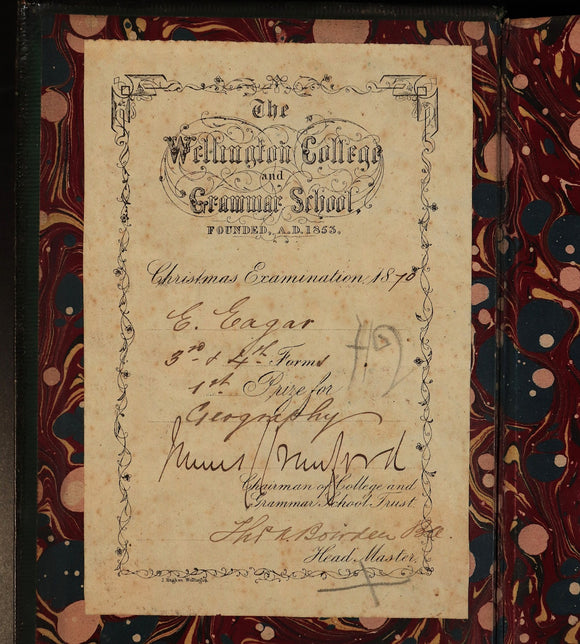 The
Wellington College
and
Grammar School.
FOUNDED, A.D. 1853.
Christmas Examination, 1870
E. Eagar
3rd & 4th Forms
1st Prize for
Geography
Chairman of College and
Grammar School Trust.
Thos Bowden Ba.
Head Master.
J. Hughes, Wellington.